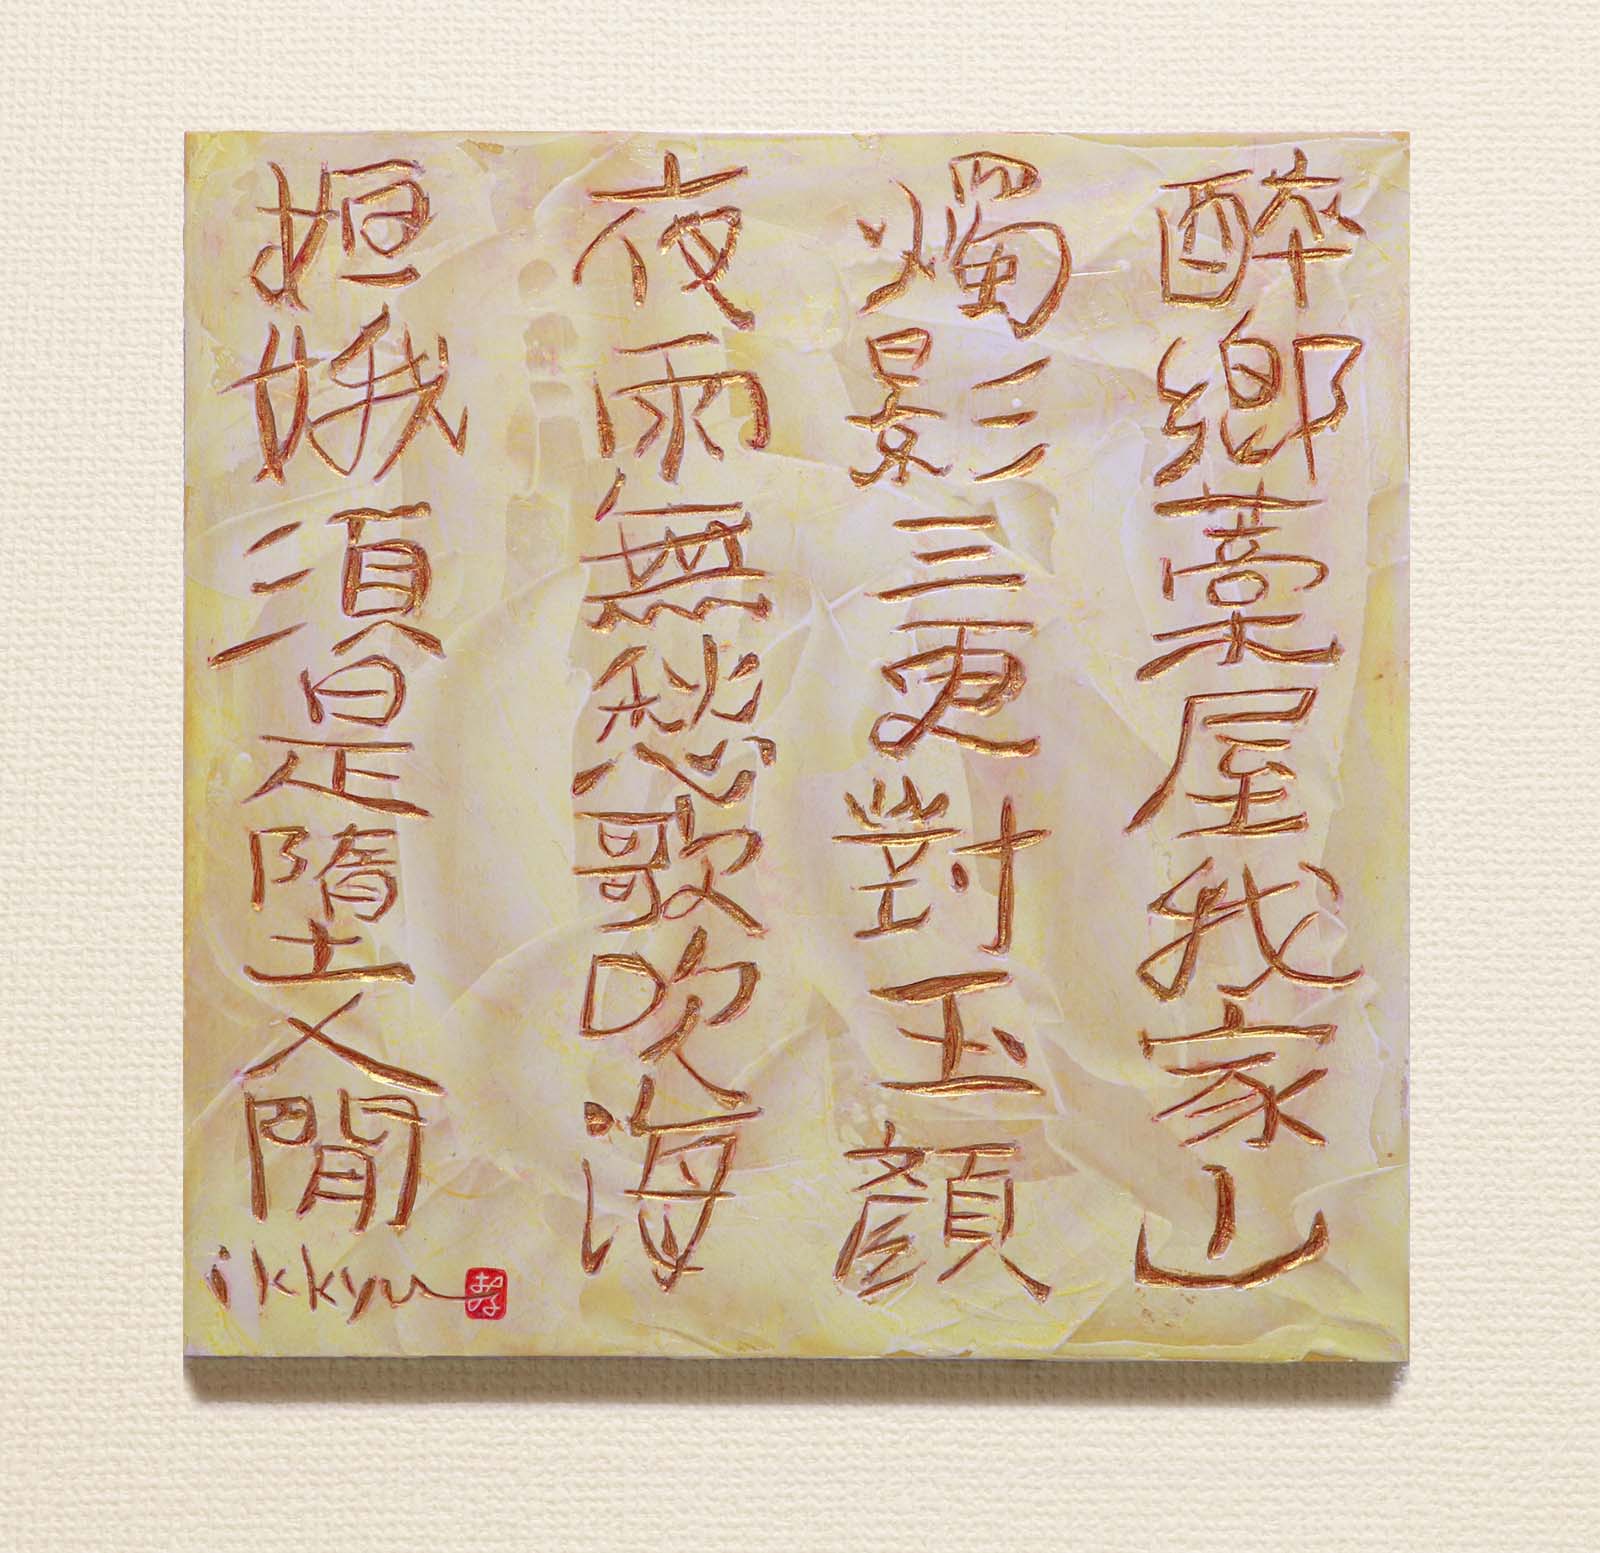 醉鄕藁屋我家山
燭影三更對玉顔
夜雨無愁歌吹海
姮娥須是墮人閒
ikkyu